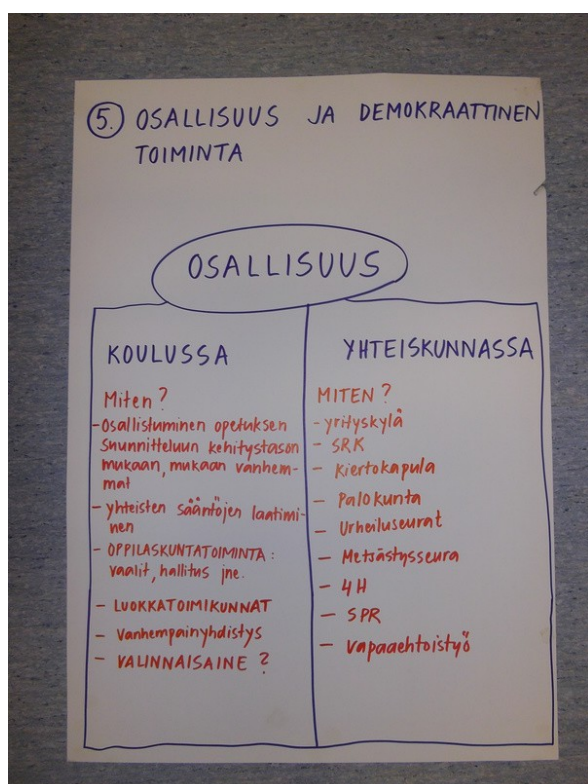 5. OSALLISUUS JA DEMOKRAATTINEN
TOIMINTA
OSALLISUUS
KOULUSSA
Miten?
- Osallistuminen opetuksen
suunnitteluun kehitystason
mukaan, mukaan vanhem-
mat
- yhteisten sääntöjen laatimi-
nen
- OPPILASKUNTATOIMINTA:
vaalit, hallitus jne.
- LUOKKATOIMIKUNNAT
- Vanhempainyhdistys
- VALINNAISAINE?
YHTEISKUNNASSA
MITEN?
- yrityskylä
- SRK
- Kiertokapula
- Palokunta
- Urheiluseurat
- Metsästysseura
- 4H
- SPR
- Vapaaehtoistyö